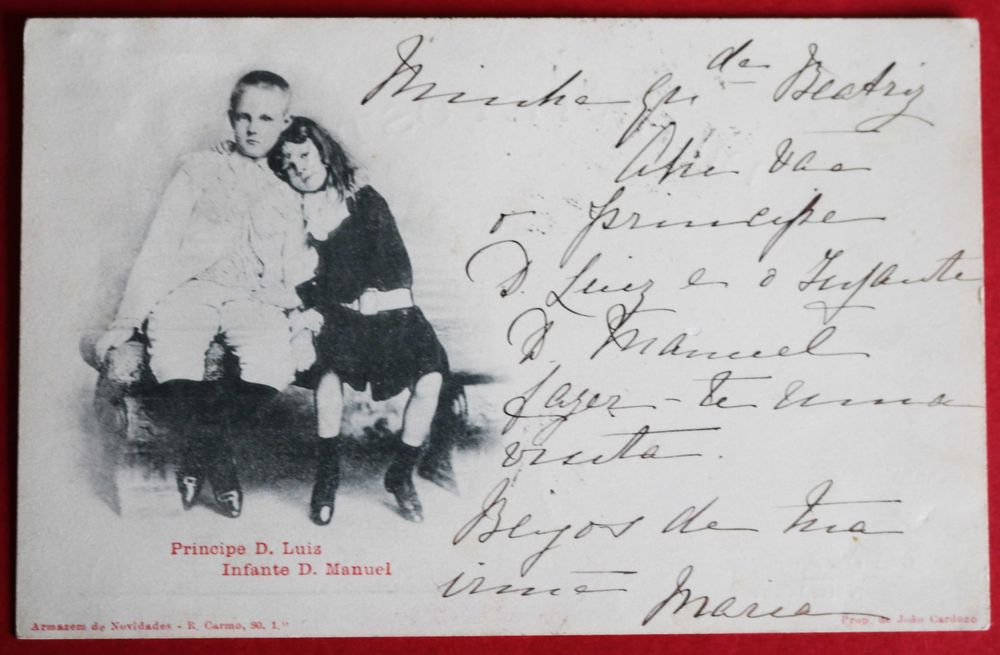 Minha qu.da Beatriz
Ahi vae
o principe
D. Luiz e o Infante
D. Manuel
fazer-te uma
visita.
Beijos de tua
irmã Maria
Principe D. Luiz
Infante D. Manuel
Armazem de Novidades - R. Carmo, 80, 1.º
Prop. de João Cardozo